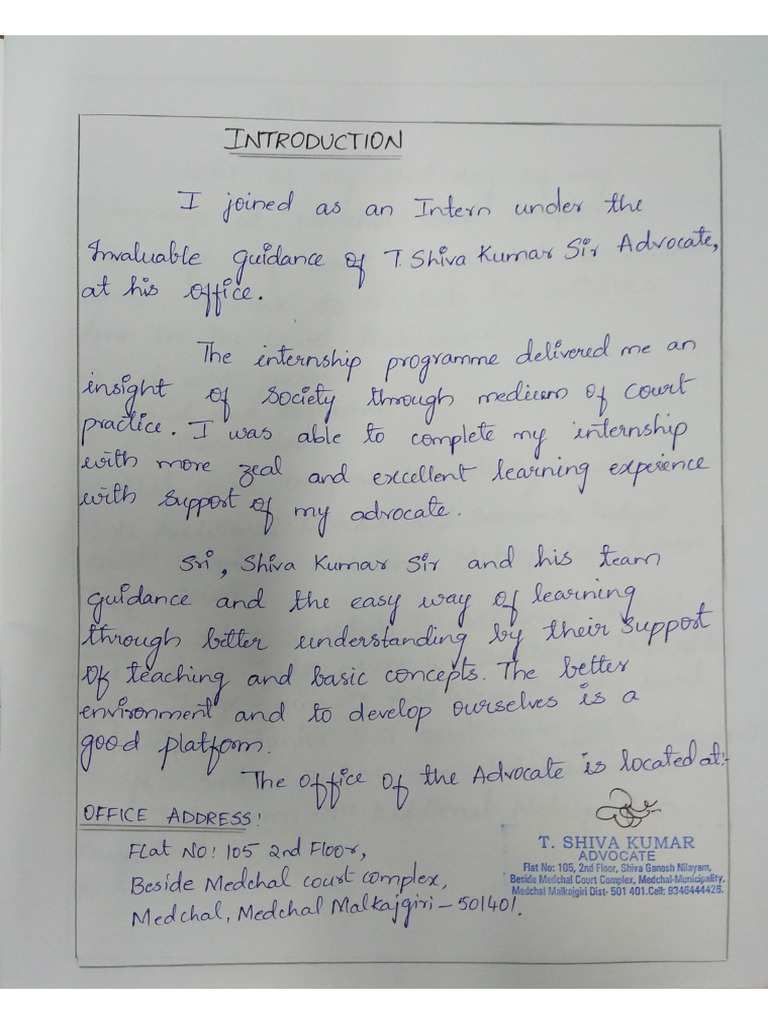 INTRODUCTION
I joined as an Intern under the
Invaluable guidance of T. Shiva Kumar Sir Advocate,
at his office.
The internship programme delivered me an
insight of society through medium of court
practice. I was able to complete my internship
with more zeal and excellent learning experience
with support of my advocate.
Sri, Shiva Kumar Sir and his team
guidance and the easy way of learning
through better understanding by their support
of teaching and basic concepts. The better
environment and to develop ourselves is a
good platform.
The office of the Advocate is located at:-
OFFICE ADDRESS:
Flat No: 105 2nd Floor,
Beside Medchal court complex,
Medchal, Medchal Malkajgiri - 501401.
T. SHIVA KUMAR
ADVOCATE
Flat No: 105, 2nd Floor, Shiva Ganesh Nilayam,
Beside Medchal Court Complex, Medchal-Municipality,
Medchal Malkajgiri Dist- 501 401.Cell: 9346444426.